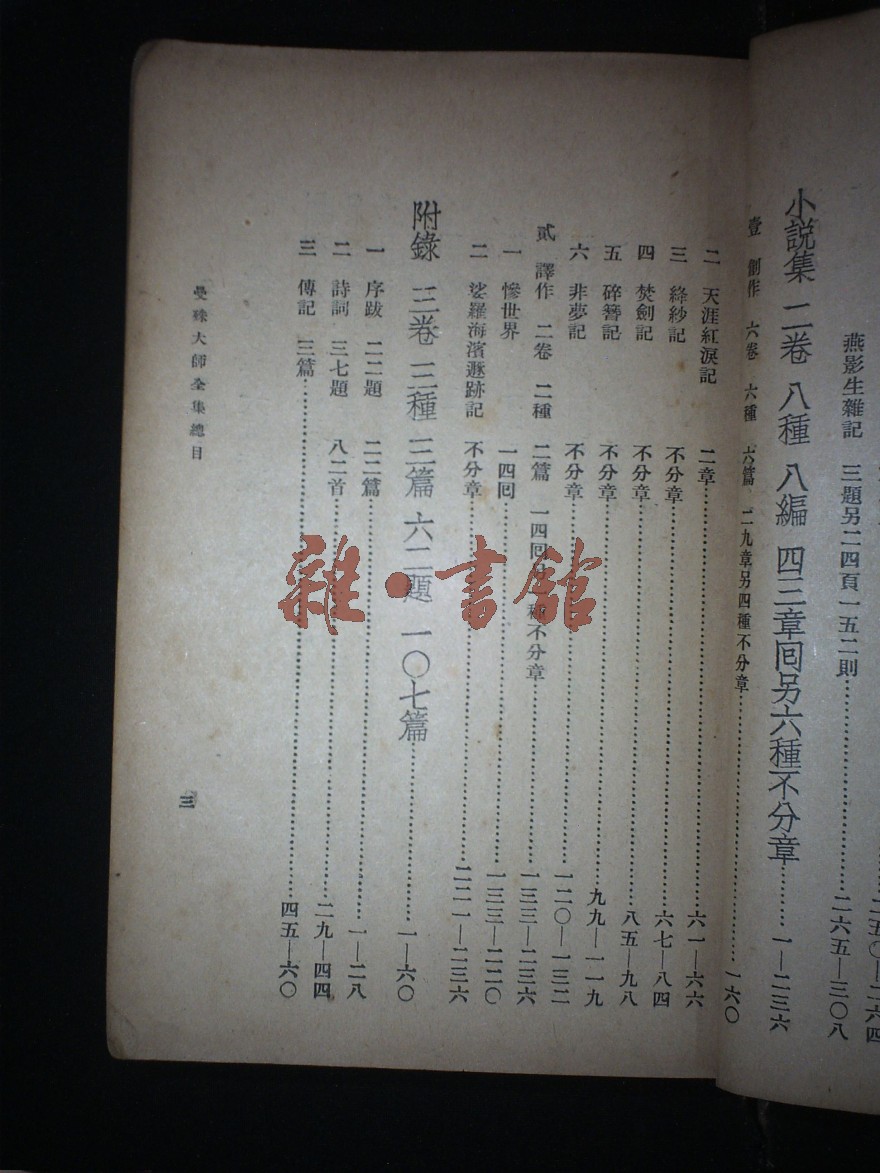 二五〇—二六四
燕影生雜記 三題另二四頁一五二則 二六五—三〇八
小說集 二卷 八種 八編 四三章回另六種不分章 一—二三六
壹 創作 六卷 六種 六篇 二九章另四種不分章 一六〇
二 天涯紅淚記 二章 六一—六六
三 絳紗記 不分章 六七—八四
四 焚劍記 不分章 八五—九八
五 碎簪記 不分章 九九—一一九
六 非夢記 不分章 一二〇—一三二
貳 譯作 二卷 二種 二篇 一四回另一種不分章 一三三—二三六
一 慘世界 一四回 一三三—二二〇
二 娑羅海濱遯跡記 不分章 二二一—二三六
附錄 三卷 三種 三篇 六二題 一〇七篇 一—六〇
一 序跋 二二題 二二篇 一—二八
二 詩詞 三七題 八二首 二九—四四
三 傳記 三篇 四五—六〇
曼殊大師全集總目
三
雜·書館